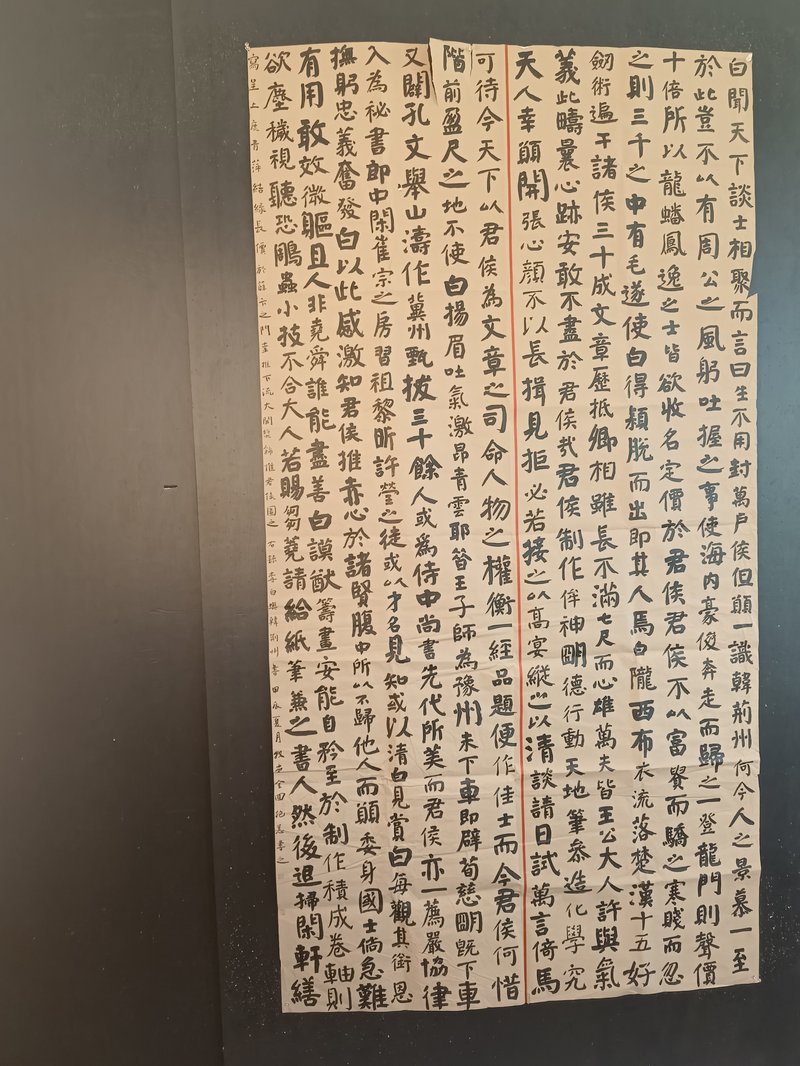 白聞天下談士相聚而言曰生不用封萬戶侯但願一識韓荊州何令人之景慕一至
於此豈不以有周公之風躬吐握之事使海內豪俊奔走而歸之一登龍門則聲價
十倍所以龍蟠鳳逸之士皆欲收名定價於君侯君侯不以富貴而驕之寒賤而忽
之則三千之中有毛遂使白得穎脫而出即其人焉白隴西布衣流落楚漢十五好
劒術遍干諸侯三十成文章歷抵卿相雖長不滿七尺而心雄萬夫皆王公大人許與氣
義此疇曩心跡安敢不盡於君侯哉君侯制作侔神明德行動天地筆參造化學究
天人幸願開張心顏不以長揖見拒必若接之以高宴縱之以清談請日試萬言倚馬
可待今天下以君侯為文章之司命人物之權衡一經品題便作佳士而今君侯何惜
階前盈尺之地不使白揚眉吐氣激昂青雲耶昔王子師為豫州未下車即辟荀慈明既下車
又闢孔文舉山濤作冀州甄拔三十餘人或為侍中尚書先代所美而君侯亦一薦嚴協律
入為秘書郎中間崔宗之房習祖黎昕許瑩之徒或以才名見知或以清白見賞白每觀其銜恩
撫躬忠義奮發白以此感激知君侯推赤心於諸賢腹中所以不歸他人而願委身國士倘急難
有用敢效微軀且人非堯舜誰能盡善白謨猷籌畫安能自矜至於制作積成卷軸則
欲塵穢視聽恐鵰蟲小技不合大人若賜芻蕘請給紙筆兼之書人然後退掃閑軒繕
寫呈上庶青萍結緣長價於薛卞之門幸推下流大開獎飾惟君侯圖之 右錄李白與韓荊州書 甲辰夏月